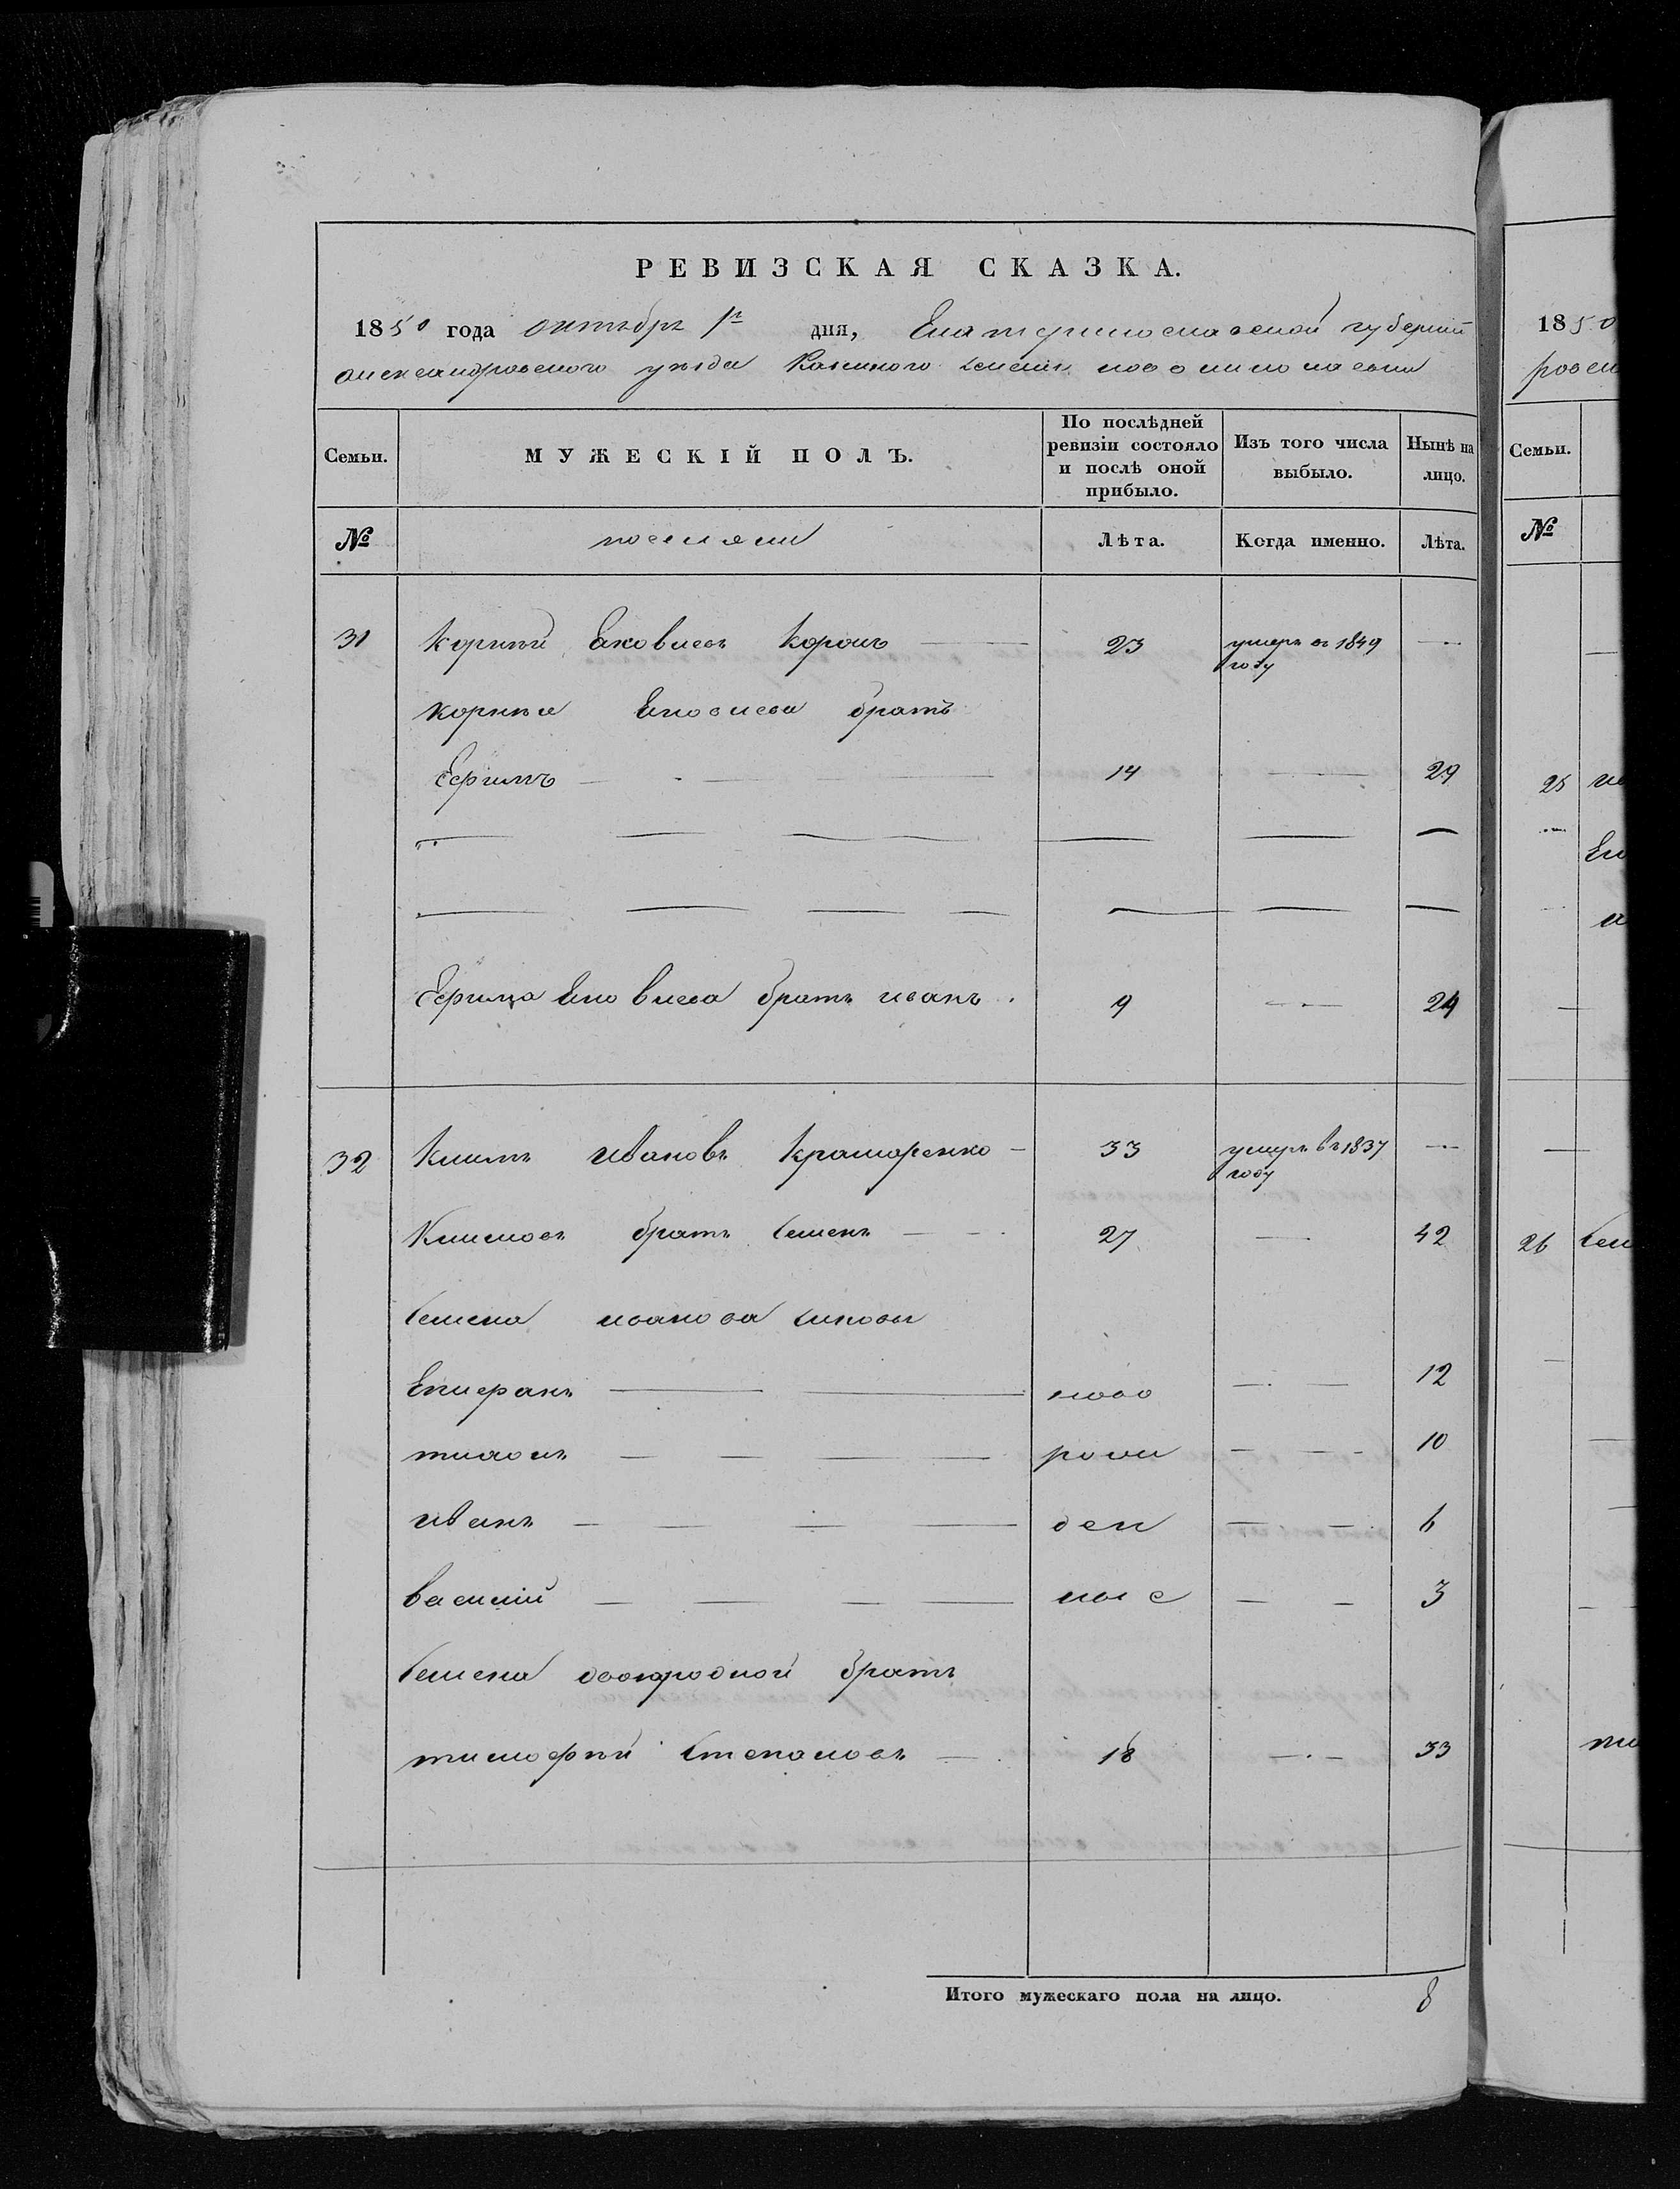 РЕВИЗСКАЯ СКАЗКА.
1850 года октября 1го дня, Екатеринославской губернии
александровского уезда Казенного селения новониколаевки
Семьи. МУЖЕСКІЙ ПОЛЪ. По послѣдней ревизіи состояло и послѣ оной прибыло. Изъ того числа выбыло. Нынѣ на лицо.
№ поселяни Лѣта. Когда именно. Лѣта.
31 Корнѣй Яковлевъ 23 умеръ въ 1849 году —
Корнѣя Яковлева братъ
Ефимъ 14 — 29
Ефима Яковлева братъ иванъ 9 — 24
32 Климъ Ивановъ Крамаренко 33 умеръ въ 1837 году —
Климовъ братъ Семенъ 27 — 42
Семена иванова синовы
Епифанъ ново — 12
рож — 10
иванъ ден — 6
василий ные — 3
Семена двоюродной братъ
тимофѣй Степановъ 18 — 33
Итого мужескаго пола на лицо. 8
1850
Семьи.
№
25
26